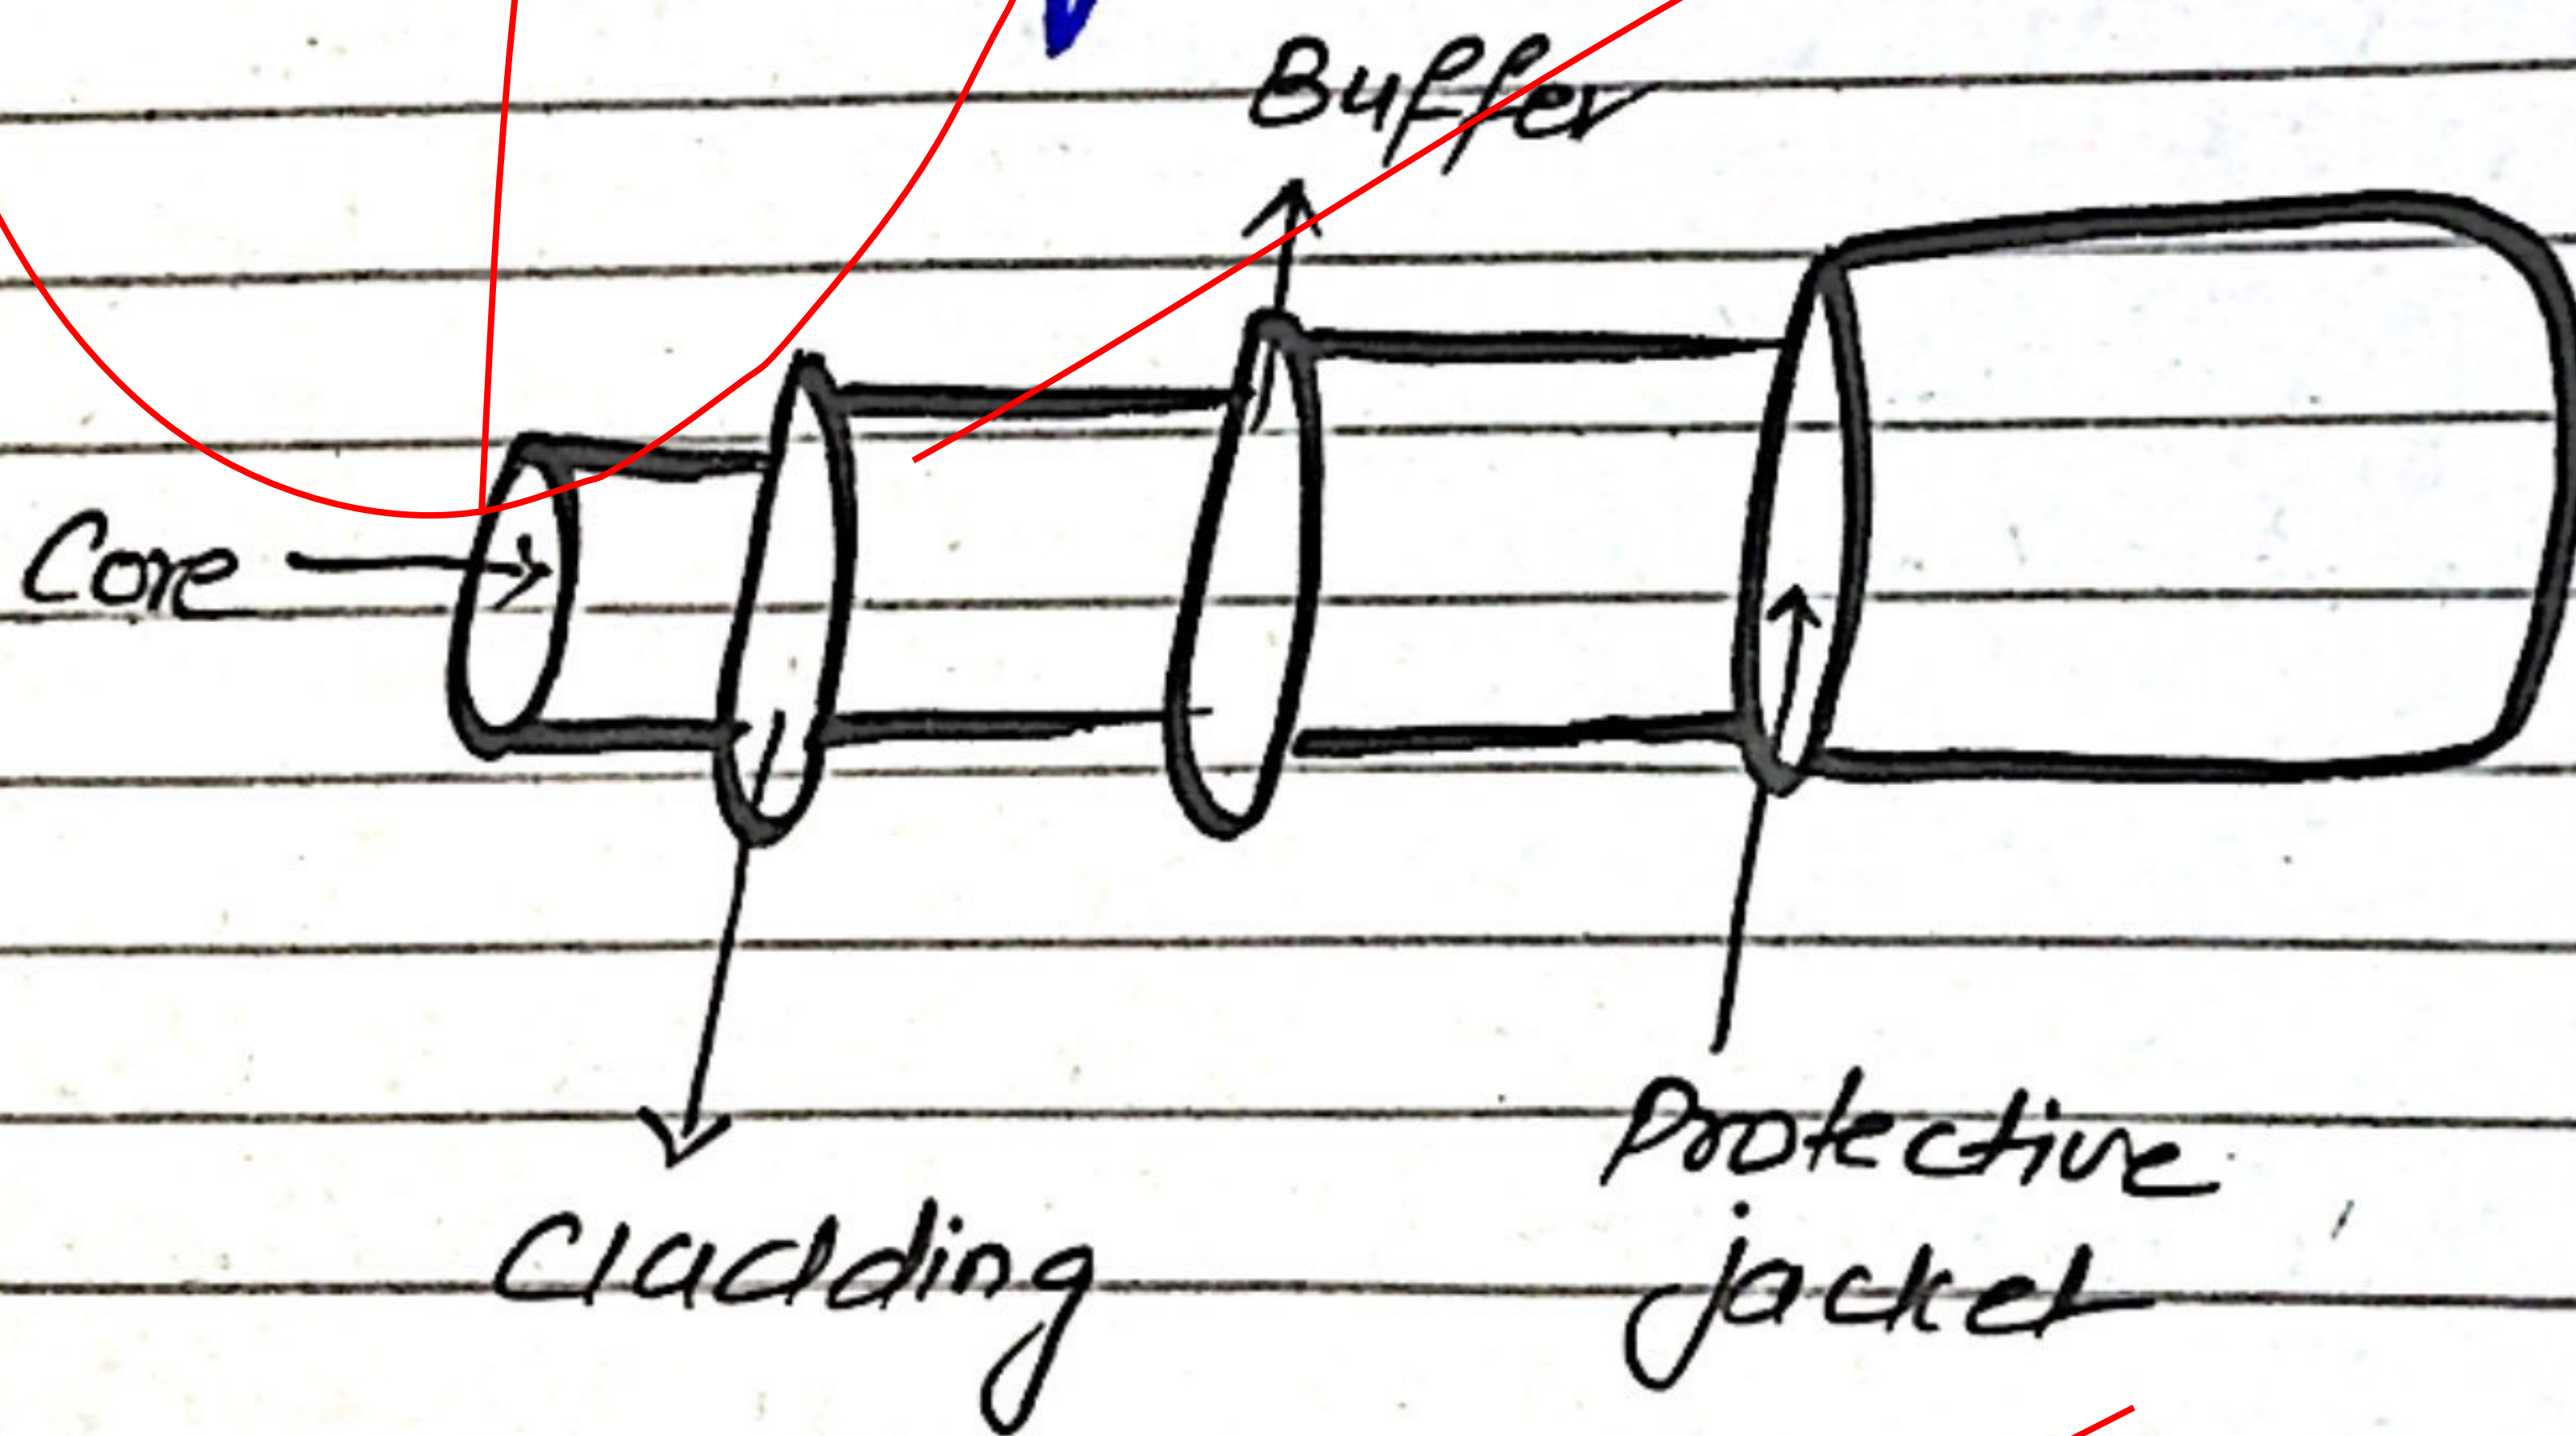 Buffer
Core
Cladding
Protective
jacket